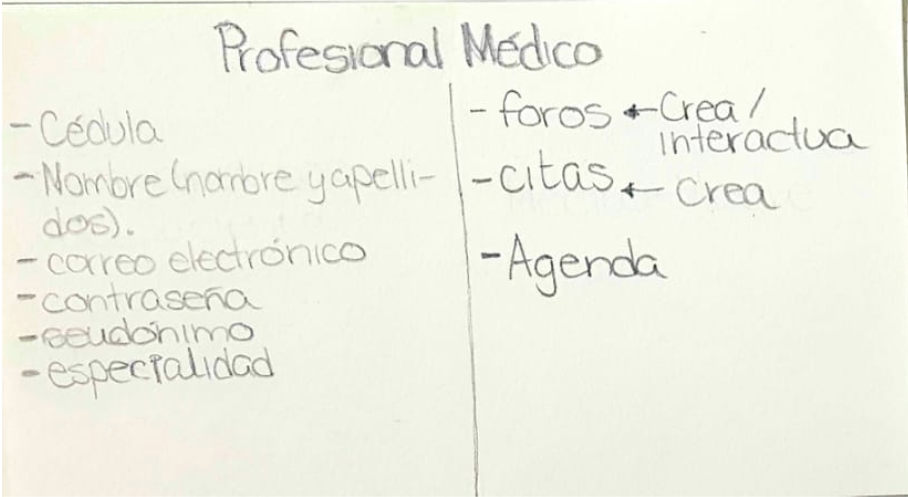 Profesional Médico
- Cédula
- Nombre (nombre y apelli-
dos).
- correo electrónico
- contraseña
- seudónimo
- especialidad
- foros ← Crea /
interactua
- citas ← Crea
- Agenda